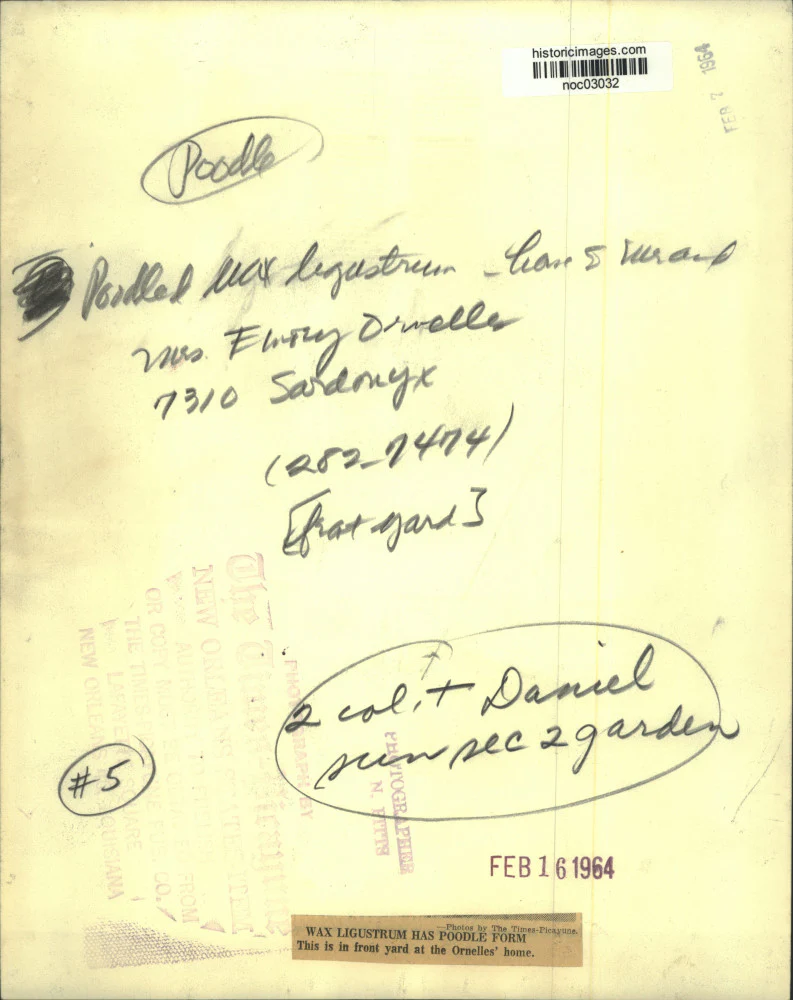 historicimages.com
noc03032
FEB 7 1964
Poodle
Poodled wax ligustrum
Mrs. Emory Ornelles
7310 Sardonyx
(282-7474)
[front yard]
2 col, + Daniel
sun sec 2 garden
#5
The Times-Picayune
NEW ORLEANS STATES-ITEM
FROM
OR CO.
THE TIMES-
LAFAYETTE SQUARE
NEW ORLEANS LOUISIANA
PHOTOGRAPH BY
PHOTOGRAPHER
N. PITTS
FEB 16 1964
—Photos by The Times-Picayune.
WAX LIGUSTRUM HAS POODLE FORM
This is in front yard at the Ornelles' home.